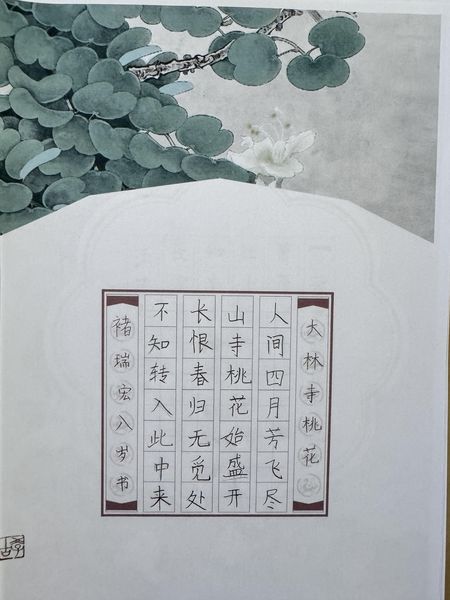 大林寺桃花
人间四月芳飞尽
山寺桃花始盛开
长恨春归无觅处
不知转入此中来
褚瑞宏八岁书